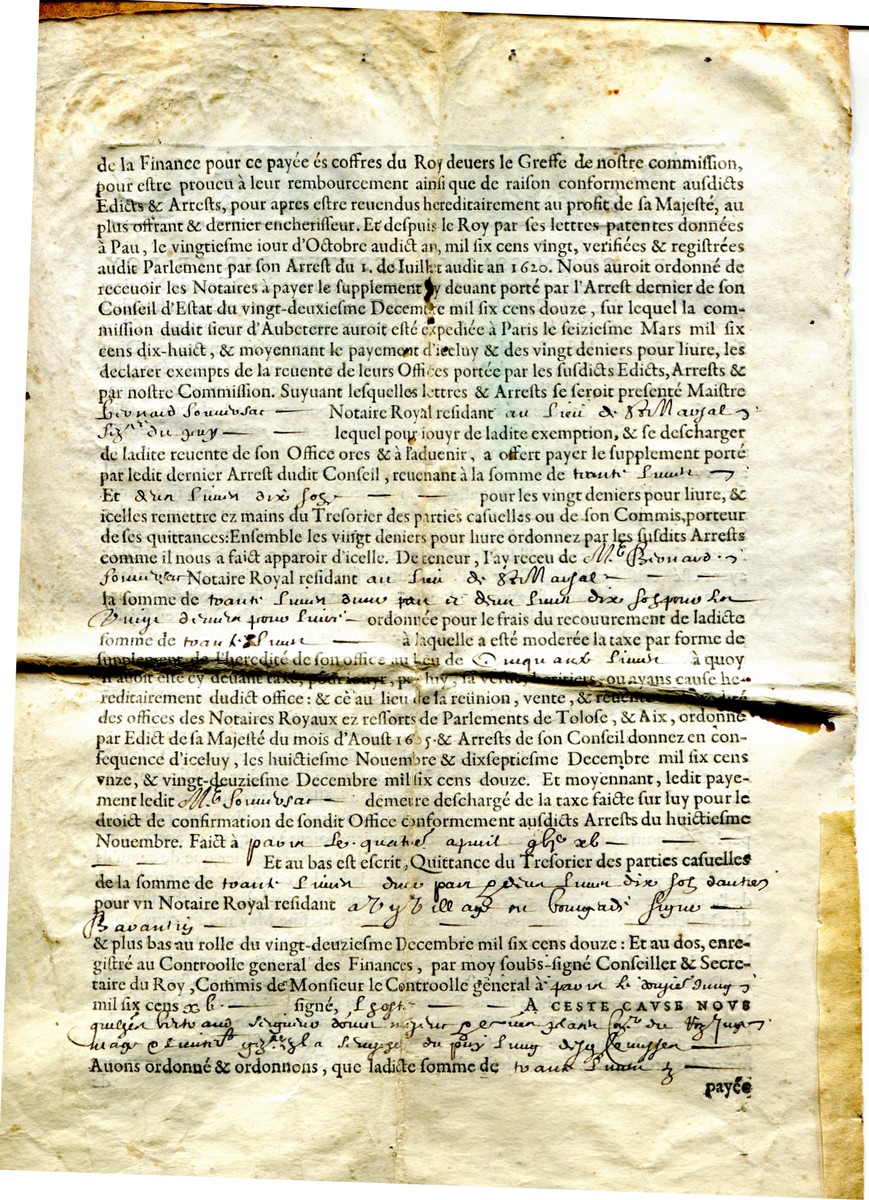 de la Finance pour ce payée és coffres du Roy deuers le Greffe de nostre commission,
pour estre proueu à leur rembourcement ainsi que de raison conformement ausdicts
Edicts & Arrests, pour apres estre reuendus hereditairement au profit de sa Majesté, au
plus offrant & dernier encherisseur. Et despuis le Roy par ses lettres patentes données
à Pau, le vingtiesme iour d'Octobre audict an, mil six cens vingt, verifiées & registrées
audit Parlement par son Arrest du 1. de Iuillet audit an 1620. Nous auroit ordonné de
receuoir les Notaires à payer le supplement cy deuant porté par l'Arrest dernier de son
Conseil d'Estat du vingt-deuxiesme Decembre mil six cens douze, sur lequel la com-
mission dudit sieur d'Aubeterre auroit esté expediée à Paris le seiziesme Mars mil six
cens dix-huict, & moyennant le payement d'iceluy & des vingt deniers pour liure, les
declarer exempts de la reuente de leurs Offices portée par les susdicts Edicts, Arrests &
par nostre Commission. Suyuant lesquelles lettres & Arrests se seroit presenté Maistre
Notaire Royal residant au lieu de
lequel pour iouyr de ladite exemption, & se descharger
de ladite reuente de son Office ores & à l'aduenir, a offert payer le supplement porté
par ledit dernier Arrest dudit Conseil, reuenant à la somme de trante liures
Et deux liures dix solz pour les vingt deniers pour liure, &
icelles remettre ez mains du Tresorier des parties casuelles ou de son Commis, porteur
de ses quittances: Ensemble les vingt deniers pour liure ordonnez par les susdits Arrests
comme il nous a faict apparoir d'icelle. De teneur, I'ay receu de Me Bernard
Notaire Royal residant au lieu de
la somme de trante liures dune part et deux liures dix solz pour les
vingt deniers pour liure ordonnée pour le frais du recouurement de ladicte
somme de trante liures à laquelle a esté moderée la taxe par forme de
supplement de l'heredité de son office au lieu de Cinquante liures à quoy
il auoit esté cy deuant taxé, luy, sa vefue, heritiers, ou ayans cause he-
reditairement dudict office: & ce au lieu de la reünion, vente, & reuente
des offices des Notaires Royaux ez ressorts de Parlements de Tolose, & Aix, ordonné
par Edict de sa Majesté du mois d'Aoust & Arrests de son Conseil donnez en con-
sequence d'iceluy, les huictiesme Nouembre & dixseptiesme Decembre mil six cens
vnze, & vingt-deuziesme Decembre mil six cens douze. Et moyennant, ledit paye-
ment ledit Me demeure deschargé de la taxe faicte sur luy pour le
droict de confirmation de sondit Office conformement ausdicts Arrests du huictiesme
Nouembre. Faict à paris le quatre apuril
Et au bas est escrit, Quittance du Tresorier des parties casuelles
de la somme de trante liures dune part deux liures dix solz dautre
pour vn Notaire Royal residant
& plus bas au rolle du vingt-deuziesme Decembre mil six cens douze: Et au dos, enre-
gistré au Controolle general des Finances, par moy soubs-signé Conseiller & Secre-
taire du Roy, Commis de Monsieur le Controolle general à paris le
mil six cens signé, A CESTE CAVSE NOVS
Auons ordonné & ordonnons, que ladicte somme de trante liures
payée